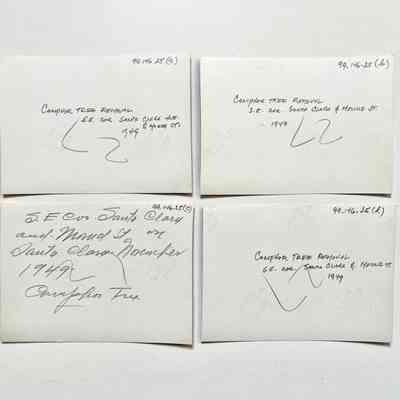 99.146.25(a)
CAMPHOR TREE REMOVAL
S.E. COR. SANTA CLARA AVE
& MOUND ST.
1949
99.146.25(b)
CAMPHOR TREE REMOVAL
S.E. COR. SANTA CLARA & MOUND ST.
1949
99.146.25(c)
S. E Cor Santa Clara
and Mound St, on
Santa Clara November
1949
Camphor Tree
CAMPHOR TREE REMOVAL
S.E. COR. SANTA CLARA & MOUND ST
1949